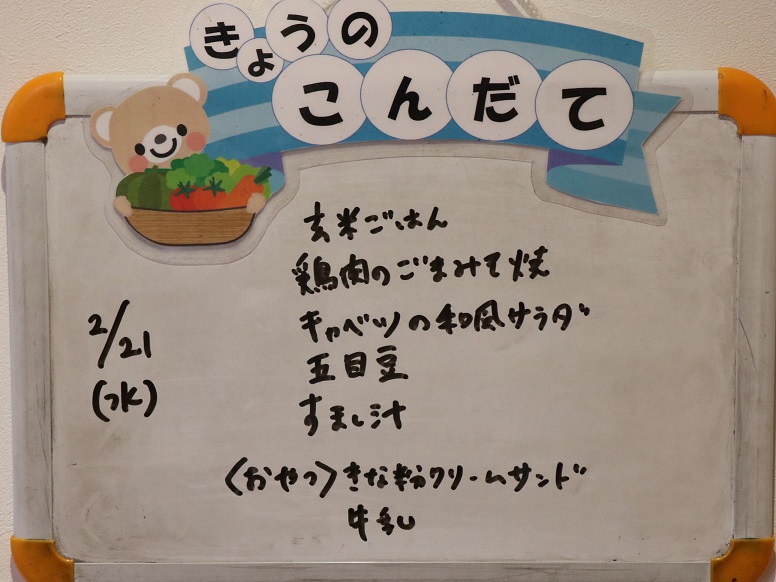 きょうの
こんだて
玄米ごはん
鶏肉のごまみそ焼
キャベツの和風サラダ
2/21
(水)
五目豆
すまし汁
〈おやつ〉きな粉クリームサンド
牛乳